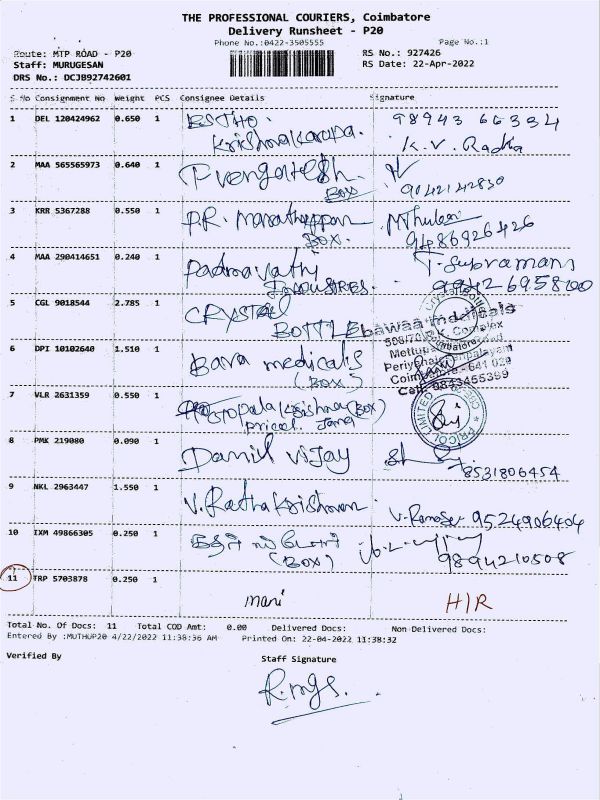 THE PROFESSIONAL COURIERS, Coimbatore
Delivery Runsheet - P20
Phone No.:0422-3505555
Page No.:1
Route: MTP ROAD - P20
RS No.: 927426
Staff: MURUGESAN
RS Date: 22-Apr-2022
DRS No.: DCJB92742601
S No Consignment No Weight PCS Consignee Details Signature
1 DEL 120424962 0.650 1 98943 66334
K.V. Radha
2 MAA 565565973 0.640 1 P vengatesh. 9042142830
BOX
3 KRR 5367288 0.550 1 P.R. 9486926426
BOX.
4 MAA 290414651 0.240 1 Padmavathi
INDUSTRES.
5 CGL 9018544 2.785 1 CRYSTAL
BOTTLE
bawaa medicals
Complex
Coimbatore - 641 029
6 DPI 10102640 1.510 1 Bava medicals
(BOX)
7 VLR 2631359 0.550 1 (BOX)
pricol.
PRICOL LIMITED
8 PMK 219080 0.090 1 Danil vijay 8531806454
9 NKL 2963447 1.550 1 V. Rathakrishnan 9524906404
10 IXM 49866305 0.250 1 9894210508
(BOX)
11 TRP 5703878 0.250 1 mani H/R
Total No. Of Docs: 11 Total COD Amt: 0.00 Delivered Docs: Non-Delivered Docs:
Entered By :MUTHUP20 4/22/2022 11:38:36 AM Printed On: 22-04-2022 11:38:32
Verified By Staff Signature